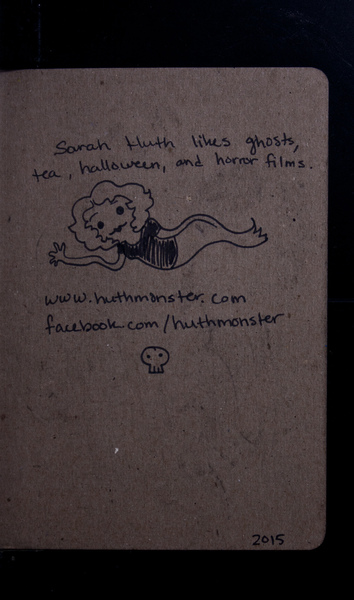 Sarah Huth likes ghosts,
tea, halloween, and horror films.
www.huthmonster.com
facebook.com/huthmonster
2015